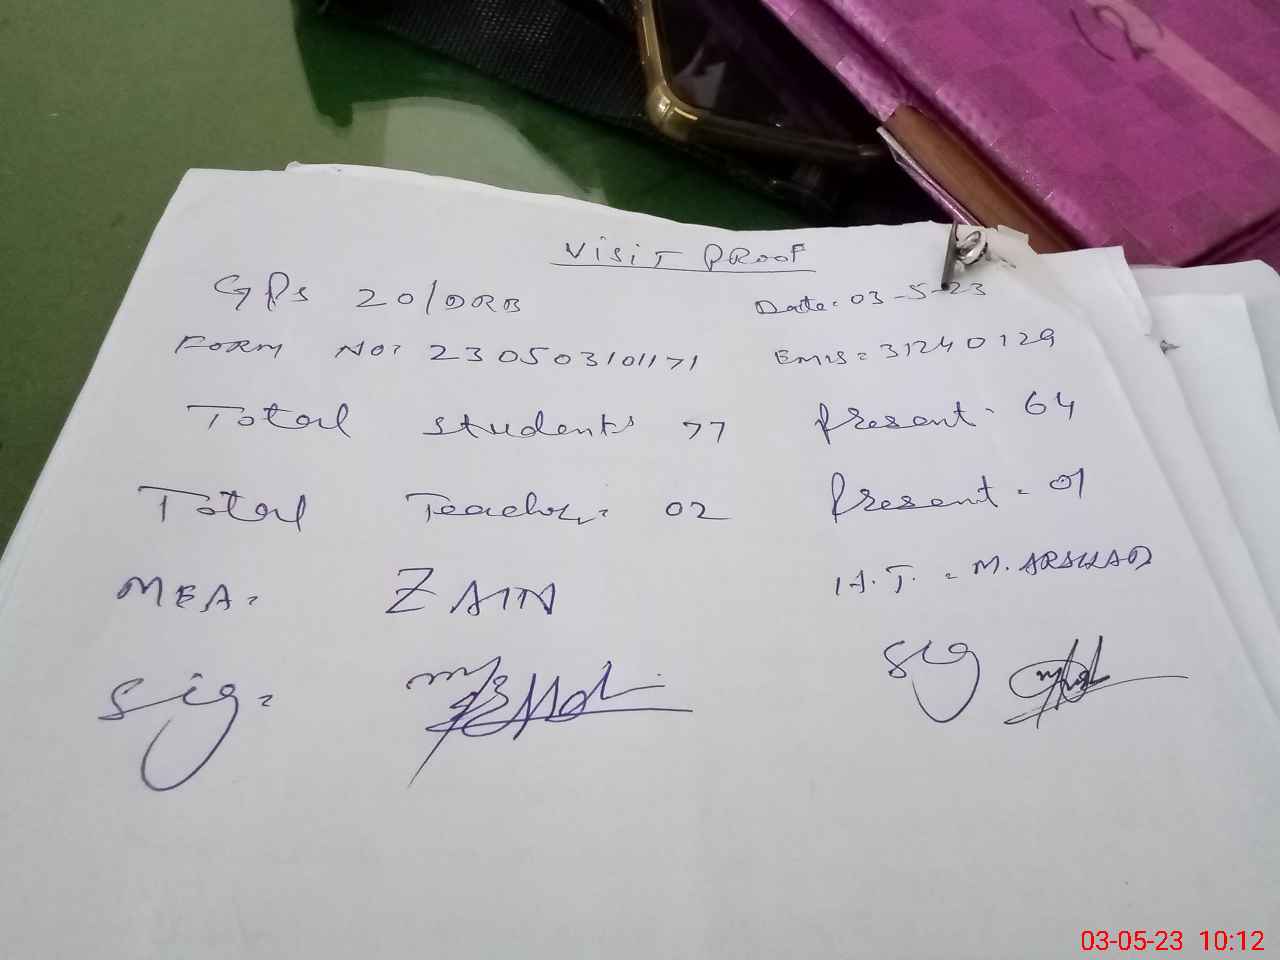 (2)
VISIT PROOF
GPS 20/DRB Date: 03-5-23
FORM NO: 230503101171 EMIS = 31240129
Total students 77 Present. 64
Total Teacher: 02 Present = 01
MEA: ZAIN H.T. = M. ARSHAD
Sig: Sig
03-05-23 10:12